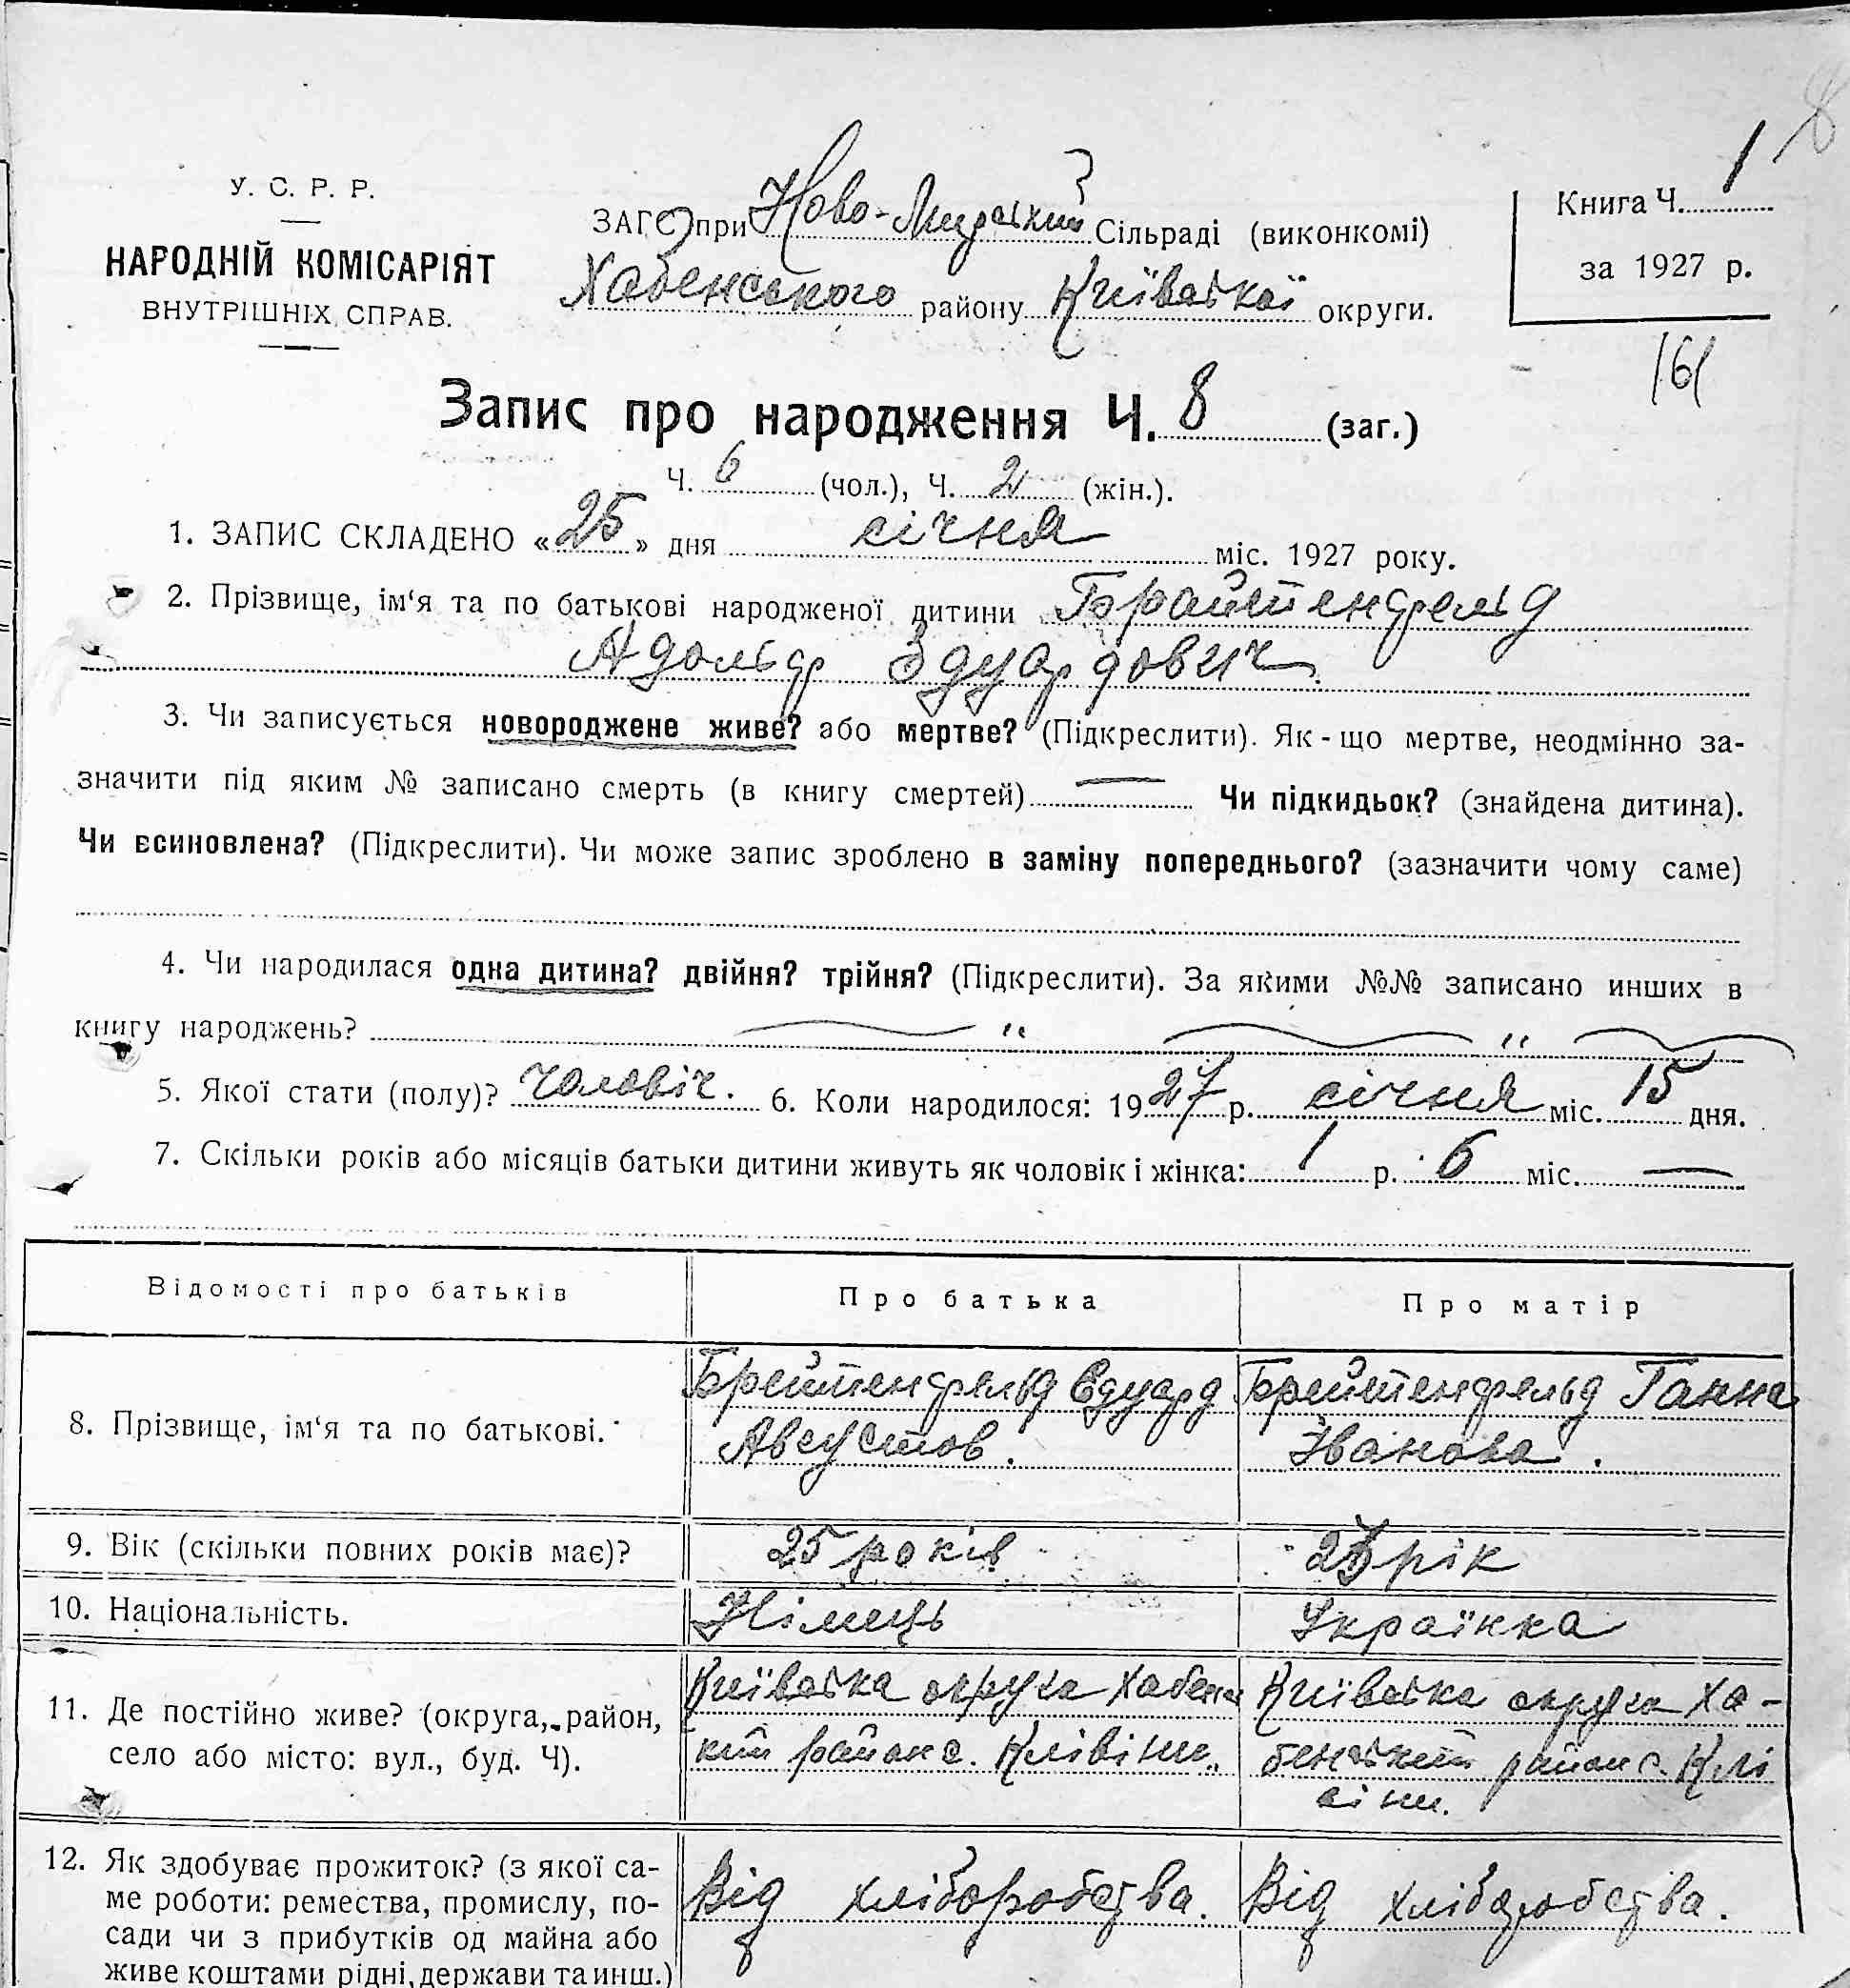 8
У. С. Р. Р.
НАРОДНІЙ КОМІСАРІЯТ
ВНУТРІШНІХ СПРАВ.
ЗАГС при Ново-Мирський Сільраді (виконкомі)
Хабенського району Київської округи.
Книга Ч. 1
за 1927 р.
161
Запис про народження Ч. 8 (заг.)
Ч. 6 (чол.), Ч. 2 (жін.).
1. ЗАПИС СКЛАДЕНО «25» дня січня міс. 1927 року.
2. Прізвище, ім‘я та по батькові народженої дитини Брайтенфельд
Адольф Эдуардович.
3. Чи записується новороджене живе? або мертве? (Підкреслити). Як-що мертве, неодмінно за-
значити під яким № записано смерть (в книгу смертей) — Чи підкидьок? (знайдена дитина).
Чи всиновлена? (Підкреслити). Чи може запис зроблено в заміну попереднього? (зазначити чому саме)
4. Чи народилася одна дитина? двійня? трійня? (Підкреслити). За якими №№ записано инших в
книгу народжень? — " — " —
5. Якої стати (полу)? чоловіч. 6. Коли народилося: 1927 р. січня міс. 15 дня.
7. Скільки років або місяців батьки дитини живуть як чоловік і жінка: 1 р. 6 міс. —
Відомості про батьків
Про батька
Про матір
8. Прізвище, ім‘я та по батькові.
Брейтенфельд Едуард
Августов.
Брейтенфельд Ганна
Іванова.
9. Вік (скільки повних років має)?
25 років
рік
10. Національність.
Німець
Українка
11. Де постійно живе? (округа, район,
село або місто: вул., буд. Ч).
Київська округа Хабенсь
кий район с. Клівіни.
Київська округа Ха-
бенський район с. Клі
віни.
12. Як здобуває прожиток? (з якої са-
ме роботи: ремества, промислу, по-
сади чи з прибутків од майна або
живе коштами рідні, держави та инш.)
Від хліборобства.
Від хліборобства.